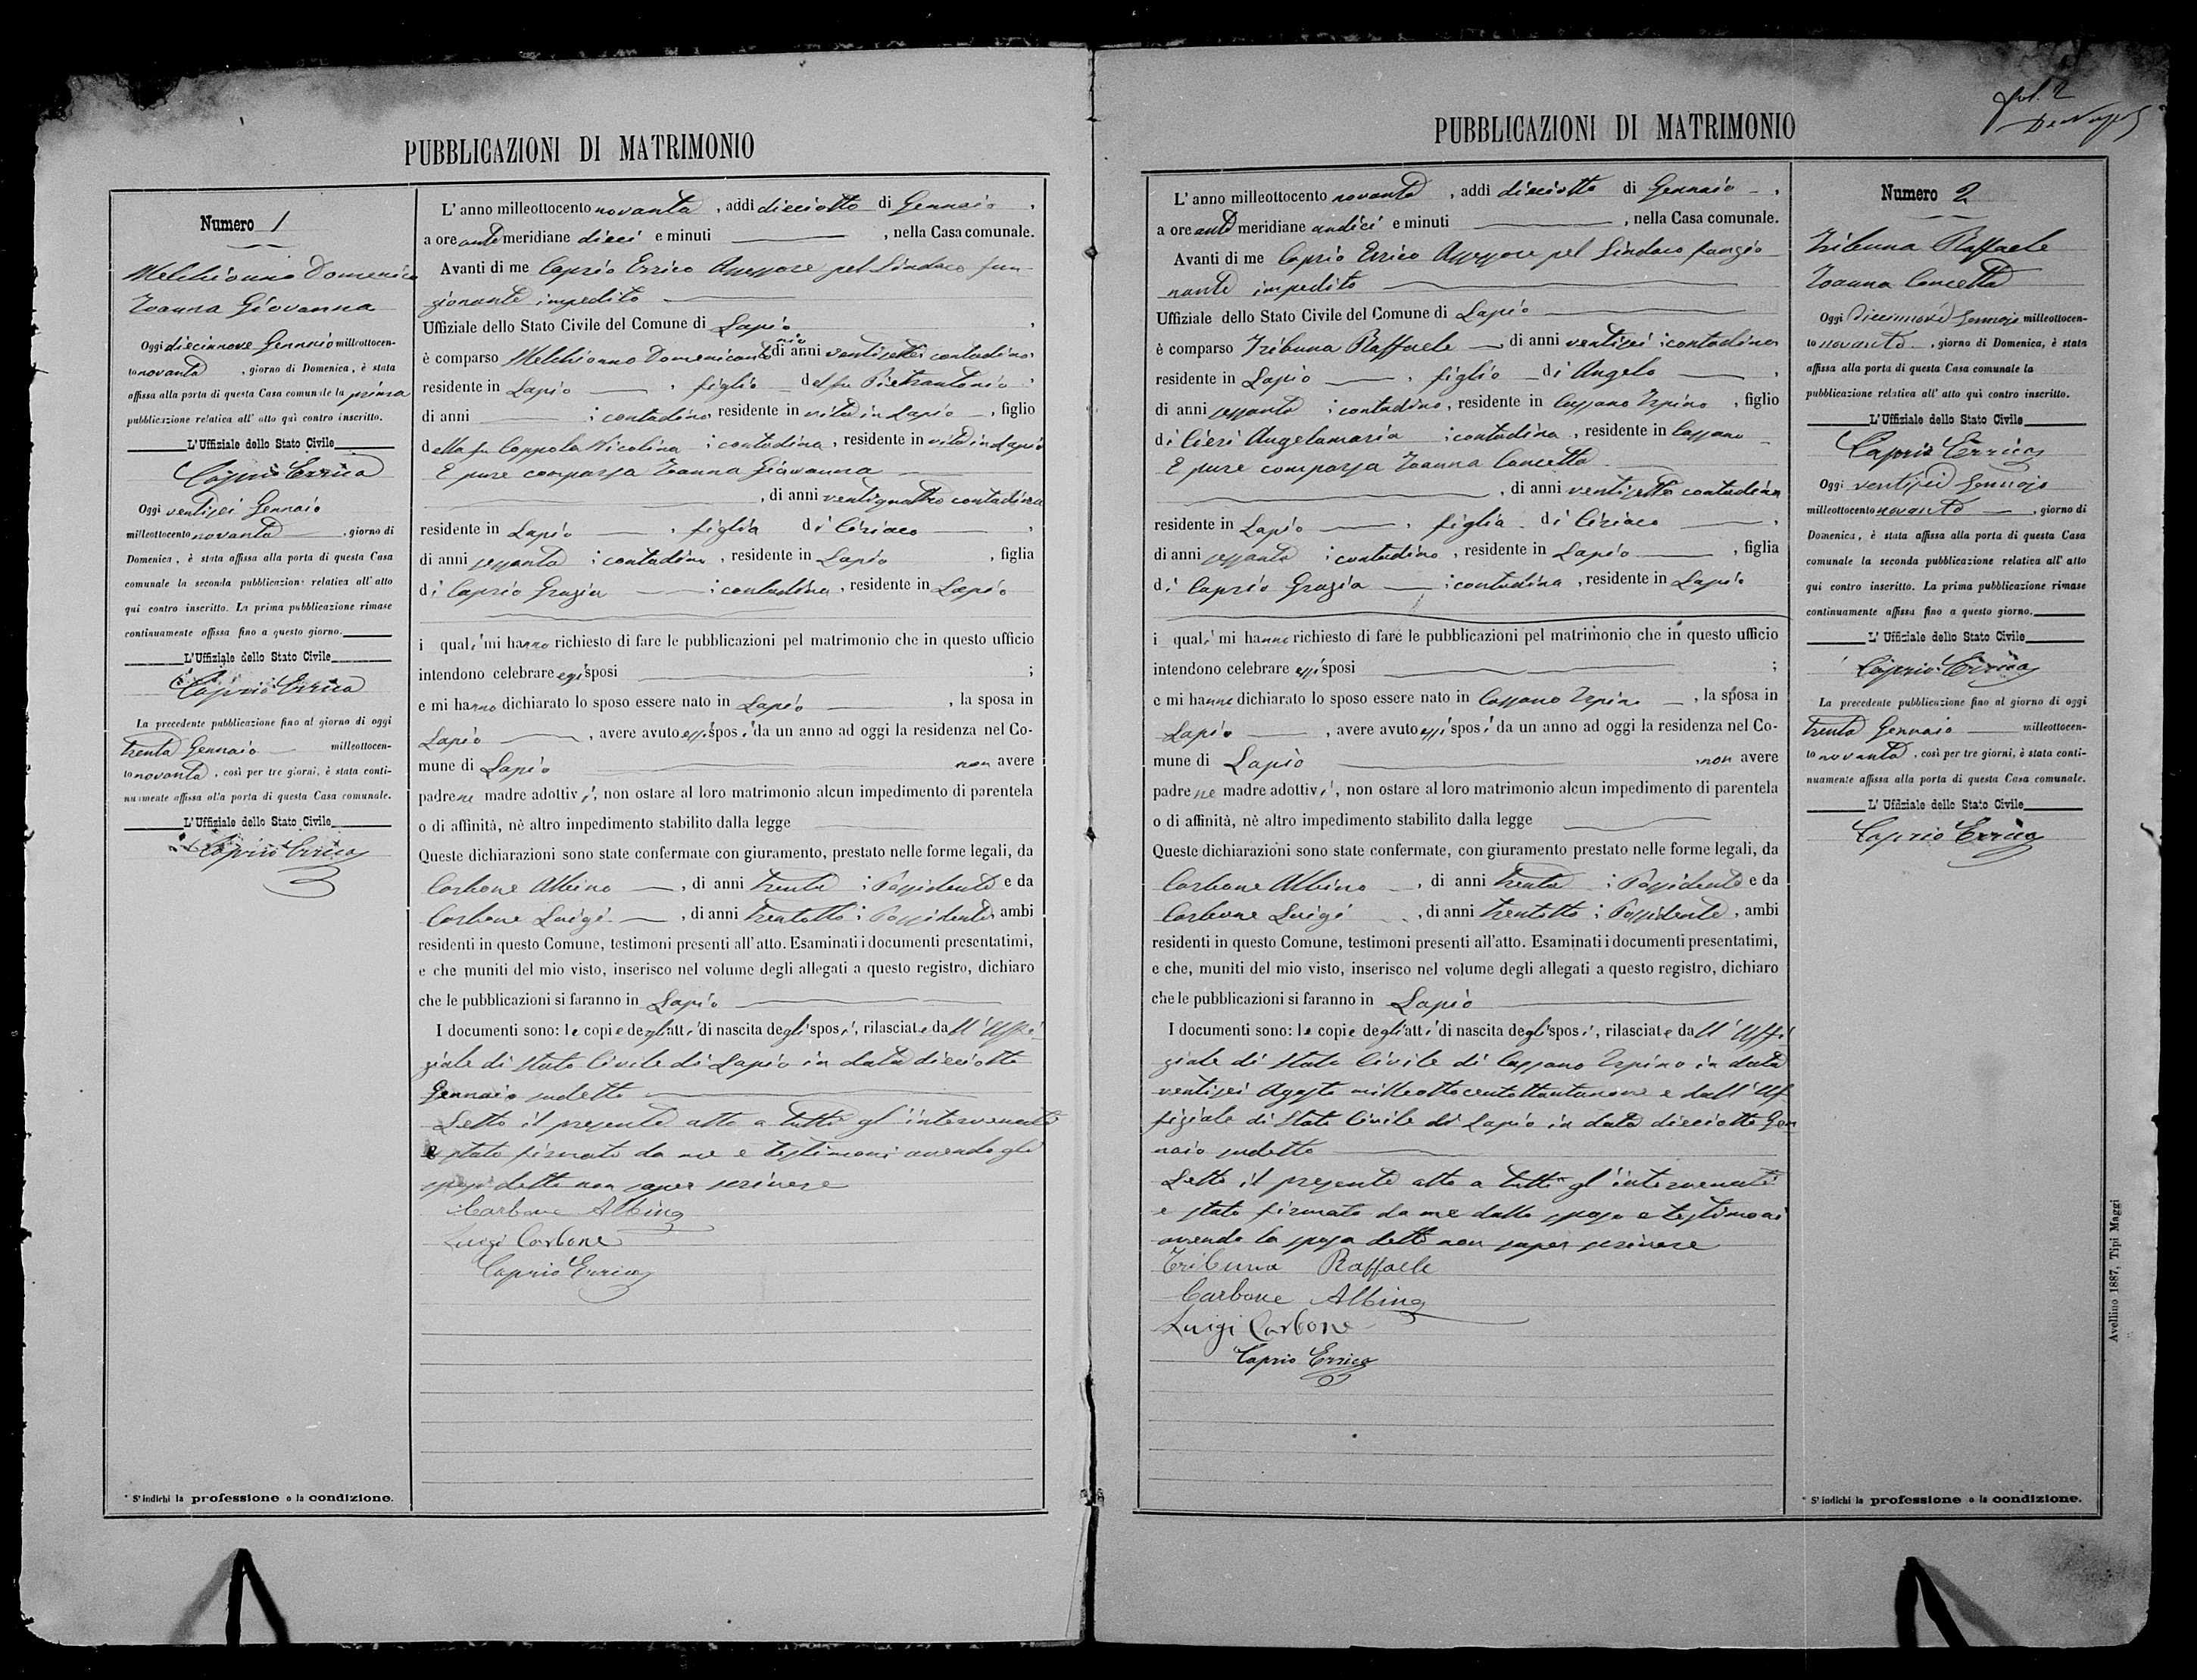 PUBBLICAZIONI DI MATRIMONIO
Numero 1
Melchionno Domenico
Ioanna Giovanna
Oggi diecinnove Gennaio milleottocen-
to novanta , giorno di Domenica, è stata
affissa alla porta di questa Casa comunale la prima
pubblicazione relativa all' atto quì contro inscritto.
L'Uffiziale dello Stato Civile
Caprio Errico
Oggi ventisei Gennaio
milleottocento novanta , giorno di
Domenica, è stata affissa alla porta di questa Casa
comunale la seconda pubblicazione relativa all' atto
qui contro inscritto. La prima pubblicazione rimase
continuamente affissa fino a questo giorno.
L'Uffiziale dello Stato Civile
Caprio Errico
La precedente pubblicazione fino al giorno di oggi
trenta Gennaio milleottocen-
to novanta , così per tre giorni, è stata conti-
nuamente affissa alla porta di questa Casa comunale.
L'Uffiziale dello Stato Civile
Caprio Errico
* S'indichi la professione o la condizione.
L' anno milleottocento novanta , addì dieciotto di Gennaio ,
a ore ante meridiane dieci e minuti , nella Casa comunale.
Avanti di me Caprio Errico Assessore pel Sindaco fun-
zionante impedito
Uffiziale dello Stato Civile del Comune di Lapio ,
è comparso Melchionno Domenicantonio di anni ventisette contadino
residente in Lapio , figlio del fu Pietrantonio ,
di anni ; contadino residente in vita in Lapio , figlio
della fu Coppola Nicolina ; contadina , residente in vita in Lapio
E pure comparsa Ioanna Giovanna
, di anni ventiquattro contadina
residente in Lapio , figlia di Ciriaco ,
di anni sessanta ; contadino , residente in Lapio , figlia
di Caprio Grazia ; contadina , residente in Lapio
i quali mi hanno richiesto di fare le pubblicazioni pel matrimonio che in questo ufficio
intendono celebrare essi sposi ;
e mi hanno dichiarato lo sposo essere nato in Lapio , la sposa in
Lapio , avere avuto essi sposi da un anno ad oggi la residenza nel Co-
mune di Lapio non avere
padre ne madre adottivi, non ostare al loro matrimonio alcun impedimento di parentela
o di affinità, nè altro impedimento stabilito dalla legge
Queste dichiarazioni sono state confermate con giuramento, prestato nelle forme legali, da
Carbone Albino , di anni trenta ; Possidente e da
Carbone Luigi , di anni trentotto ; Possidente, ambi
residenti in questo Comune, testimoni presenti all'atto. Esaminati i documenti presentatimi,
e che muniti del mio visto, inserisco nel volume degli allegati a questo registro, dichiaro
che le pubblicazioni si faranno in Lapio
I documenti sono: le copie degli atti di nascita degli sposi, rilasciate dall'Uffi-
ziale di Stato Civile di Lapio in data dieciotto
Gennaio sudetto
Letto il presente atto a tutti gl'intervenuti
e stato firmato da me e testimoni avendo gli
sposi detto non saper scrivere
Carbone Albino
Luigi Carbone
Caprio Errico
PUBBLICAZIONI DI MATRIMONIO
fol. 2
L' anno milleottocento novanta , addì dieciotto di Gennaio ,
a ore ante meridiane undici e minuti , nella Casa comunale.
Avanti di me Caprio Errico Assessore pel Sindaco funzio-
nante impedito
Uffiziale dello Stato Civile del Comune di Lapio
è comparso Tribuna Raffaele , di anni ventisei ; contadino
residente in Lapio , figlio di Angelo ,
di anni sessanta ; contadino, residente in Cassano Irpino , figlio
di Cieri Angelamaria ; contadina , residente in Cassano
E pure comparsa Ioanna Concetta
, di anni ventisette contadina
residente in Lapio , figlia di Ciriaco ,
di anni sessanta ; contadino , residente in Lapio , figlia
di Caprio Grazia ; contadina , residente in Lapio
i quali mi hanno richiesto di fare le pubblicazioni pel matrimonio che in questo ufficio
intendono celebrare essi sposi ;
e mi hanno dichiarato lo sposo essere nato in Cassano Irpino , la sposa in
Lapio , avere avuto essi sposi da un anno ad oggi la residenza nel Co-
mune di Lapio , non avere
padre ne madre adottivi, non ostare al loro matrimonio alcun impedimento di parentela
o di affinità, nè altro impedimento stabilito dalla legge
Queste dichiarazioni sono state confermate, con giuramento prestato nelle forme legali, da
Carbone Albino , di anni trenta ; Possidente e da
Carbone Luigi , di anni trentotto ; Possidente , ambi
residenti in questo Comune, testimoni presenti all'atto. Esaminati i documenti presentatimi,
e che, muniti del mio visto, inserisco nel volume degli allegati a questo registro, dichiaro
che le pubblicazioni si faranno in Lapio
I documenti sono: le copie degli atti di nascita degli sposi, rilasciate dall'Uffi-
ziale di Stato Civile di Cassano Irpino in data
ventisei Agosto milleottocentottantanove e dall'Uf
fiziale di Stato Civile di Lapio in data dieciotto Gen
naio sudetto
Letto il presente atto a tutti gl'intervenuti
e stato firmato da me dallo sposo e testimoni
avendo la sposa detto non saper scrivere
Tribuna Raffaele
Carbone Albino
Luigi Carbone
Caprio Errico
Numero 2
Tribuna Raffaele
Ioanna Concetta
Oggi diecinnove Gennaio milleottocen-
to novanta , giorno di Domenica, è stata
affissa alla porta di questa Casa comunale la
pubblicazione relativa all' atto quì contro inscritto.
L'Uffiziale dello Stato Civile
Caprio Errico
Oggi ventisei Gennaio
milleottocento novanta , giorno di
Domenica, è stata affissa alla porta di questa Casa
comunale la seconda pubblicazione relativa all' atto
qui contro inscritto. La prima pubblicazione rimase
continuamente affissa fino a questo giorno.
L' Uffiziale dello Stato Civile
Caprio Errico
La precedente pubblicazione fino al giorno di oggi
trenta Gennaio milleottocen-
to novanta , così per tre giorni, è stata conti-
nuamente affissa alla porta di questa Casa comunale.
L' Uffiziale dello Stato Civile
Caprio Errico
* S'indichi la professione o la condizione.
Avellino 1887, Tipi Maggi